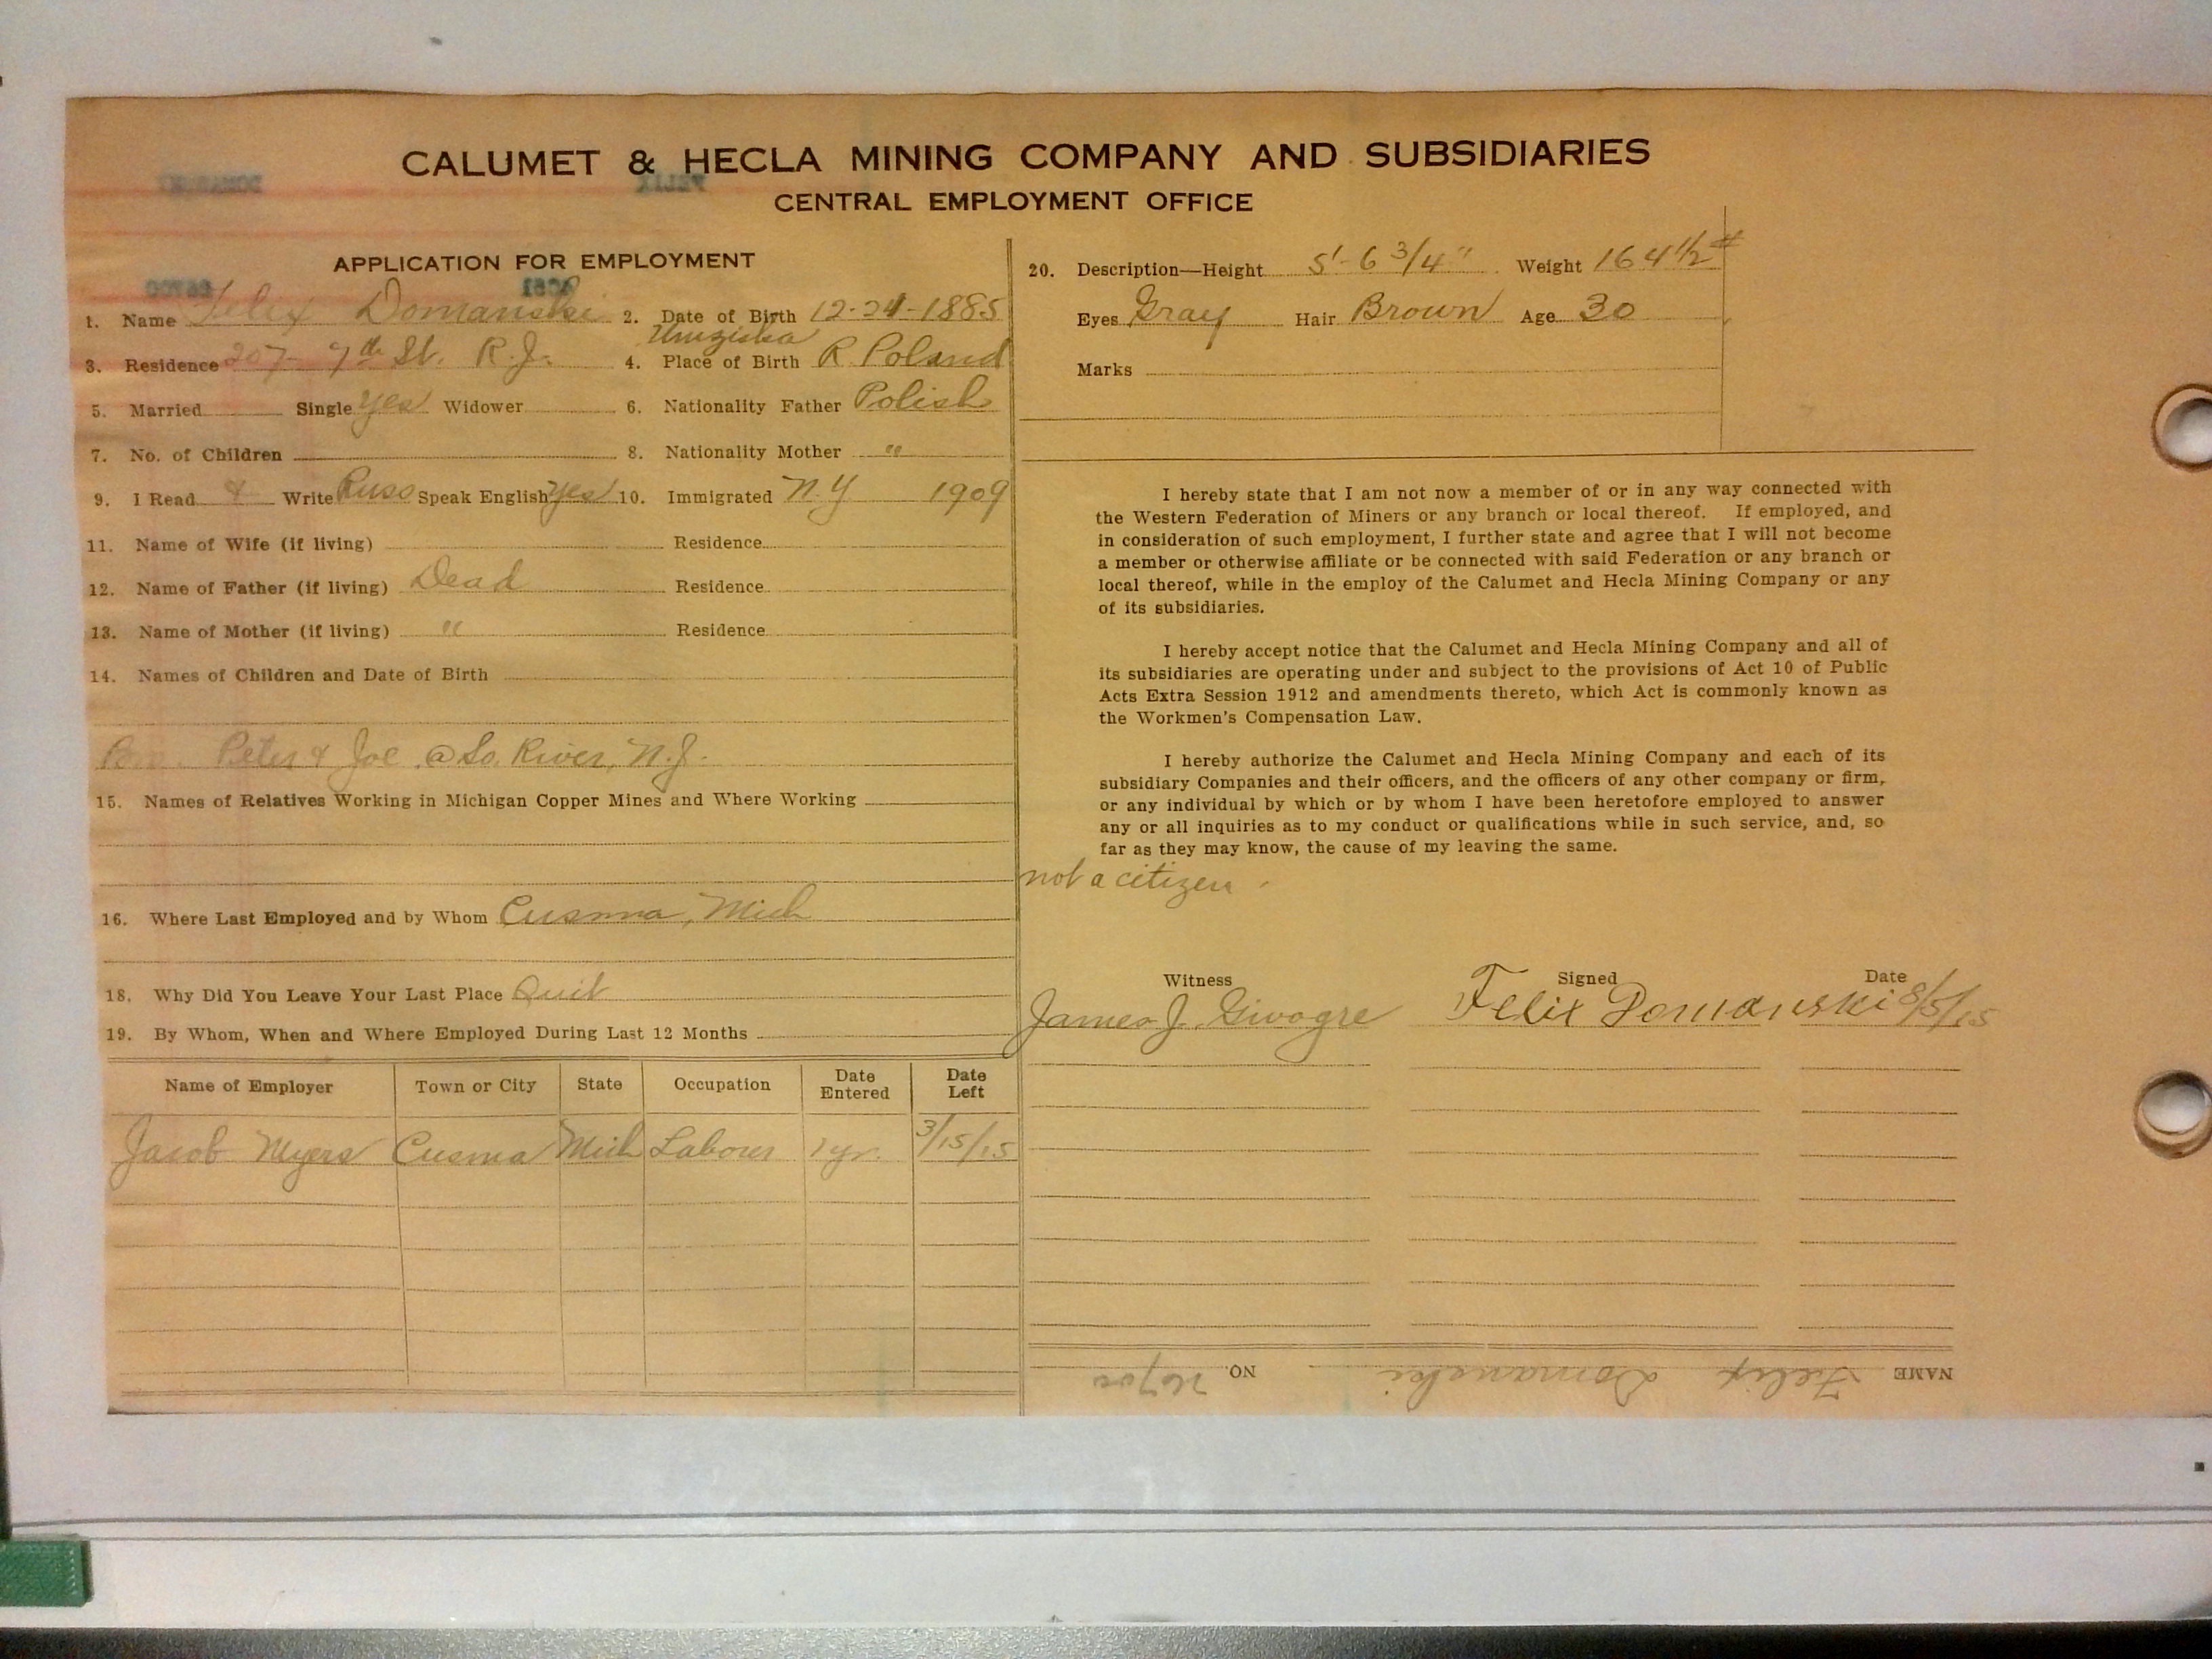 CALUMET & HECLA MINING COMPANY AND SUBSIDIARIES
CENTRAL EMPLOYMENT OFFICE
APPLICATION FOR EMPLOYMENT
1. Name Felix Domanski 2. Date of Birth 12-24-1885
3. Residence 207- 7th St. R.J. 4. Place of Birth R. Poland
5. Married Single Yes Widower 6. Nationality Father Polish
7. No. of Children 8. Nationality Mother "
9. I Read & Write Russ Speak English yes 10. Immigrated N.Y 1909
11. Name of Wife (if living) Residence
12. Name of Father (if living) Dead Residence
13. Name of Mother (if living) " Residence
14. Names of Children and Date of Birth
Peter & Joe @ So. River, N.J.
15. Names of Relatives Working in Michigan Copper Mines and Where Working
16. Where Last Employed and by Whom Cusmna, Mich
18. Why Did You Leave Your Last Place Quit
19. By Whom, When and Where Employed During Last 12 Months
Name of Employer Town or City State Occupation Date Entered Date Left
Jacob Myers Cusma Mich Laborer 1 yr. 3/15/15
20. Description—Height 5'-6 3/4" Weight 164 1/2 #
Eyes Gray Hair Brown Age 30
Marks
I hereby state that I am not now a member of or in any way connected with
the Western Federation of Miners or any branch or local thereof. If employed, and
in consideration of such employment, I further state and agree that I will not become
a member or otherwise affiliate or be connected with said Federation or any branch or
local thereof, while in the employ of the Calumet and Hecla Mining Company or any
of its subsidiaries.
I hereby accept notice that the Calumet and Hecla Mining Company and all of
its subsidiaries are operating under and subject to the provisions of Act 10 of Public
Acts Extra Session 1912 and amendments thereto, which Act is commonly known as
the Workmen's Compensation Law.
I hereby authorize the Calumet and Hecla Mining Company and each of its
subsidiary Companies and their officers, and the officers of any other company or firm,
or any individual by which or by whom I have been heretofore employed to answer
any or all inquiries as to my conduct or qualifications while in such service, and, so
far as they may know, the cause of my leaving the same.
not a citizen
Witness Signed Date
James J. Felix Domanski 8/5/15
NAME Felix Domanski NO. 26700